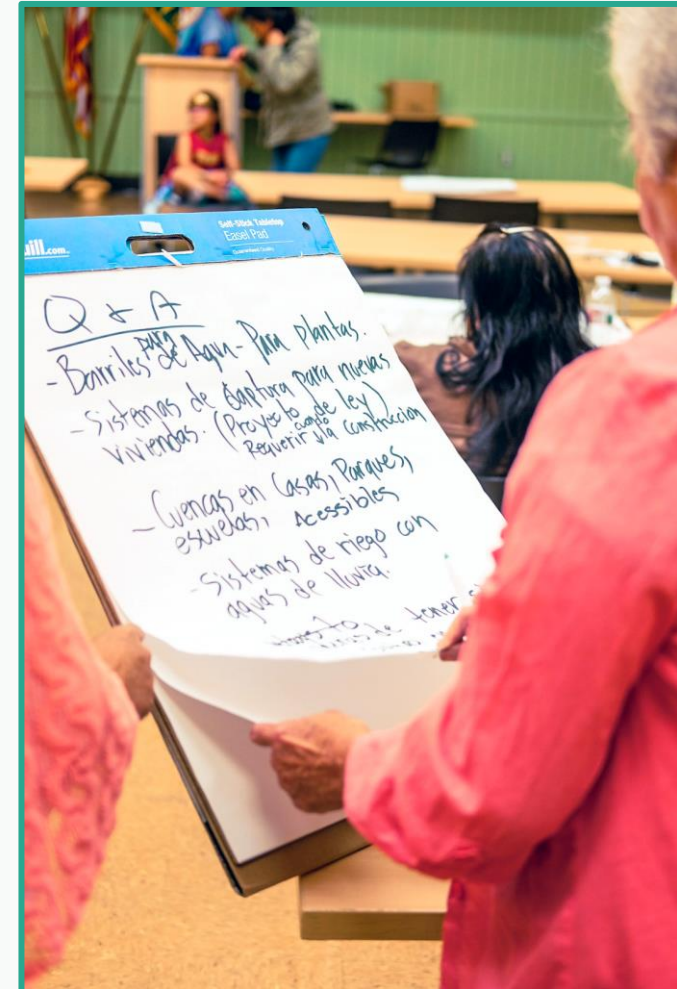 ill.com
Self-Stick Tabletop
Easel Pad
Q & A
- Barriles para de Agua - Para plantas.
- Sistemas de Captura para nuevas
viviendas. (Proyecto de ley)
Requerir la construcción
- Cuencas en Casas, Parques,
escuelas, Acessibles
- Sistemas de riego con
aguas de lluvia.
de tener